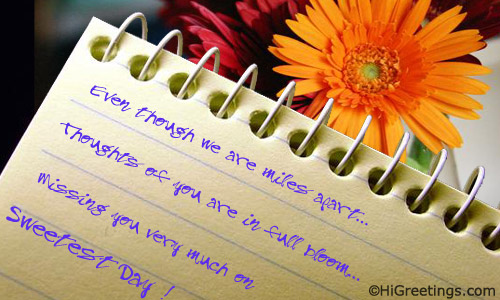 Even though we are miles apart...
Thoughts of you are in full bloom...
missing you very much on
Sweetest Day !
©HiGreetings.com